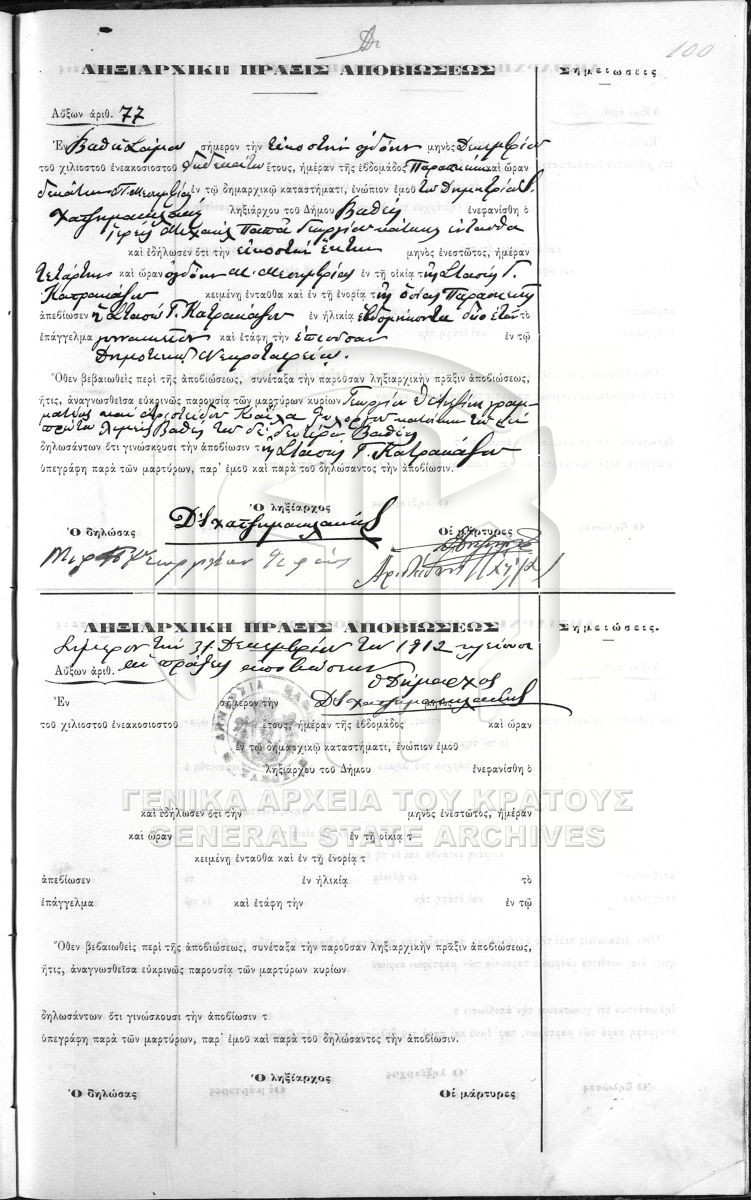 100
ΛΗΞΙΑΡΧΙΚΗ ΠΡΑΞΙΣ ΑΠΟΒΙΩΣΕΩΣ
Σημειώσεις
Αὔξων ἀριθ. 77
Ἐν Βαθεῖ Σάμου σήμερον τὴν εἰκοστὴν ὀγδόην μηνὸς Δεκεμβρίου
τοῦ χιλιοστοῦ ἐνεακοσιοστοῦ δωδεκάτου ἔτους, ἡμέραν τῆς ἑβδομάδος Παρασκευὴν καὶ ὥραν
δεκάτην π. μεσημβρίας ἐν τῷ δημαρχικῷ καταστήματι, ἐνώπιον ἐμοῦ τοῦ Δημητρίου Σ.
Χατζημανωλάκη ληξιάρχου τοῦ Δήμου Βαθέος ἐνεφανίσθη ὁ
ἱερεὺς Μιχαὴλ Παπᾶ Γεωργίου κάτοικος ἐνταῦθα
καὶ ἐδήλωσεν ὅτι τὴν εἰκοστὴν ἕκτην μηνὸς ἐνεστῶτος, ἡμέραν
Τετάρτην καὶ ὥραν ὀγδόην μ. μεσημβρίας ἐν τῇ οἰκίᾳ τῆς Στασῆς Γ.
Κατρακάζου κειμένῃ ἐνταῦθα καὶ ἐν τῇ ἐνορίᾳ τῆς ὁσίας Παρασκευῆς
ἀπεβίωσεν ἡ Στασὴ Γ. Κατρακάζου ἐν ἡλικίᾳ ἑβδομήκοντα δύο ἐτῶν τὸ
ἐπάγγελμα καὶ ἐτάφη τὴν ἐπιοῦσαν ἐν τῷ
Δημοτικῷ Νεκροταφείῳ.
Ὅθεν βεβαιωθεὶς περὶ τῆς ἀποβιώσεως, συνέταξα τὴν παροῦσαν ληξιαρχικὴν πρᾶξιν ἀποβιώσεως,
ἥτις, ἀναγνωσθεῖσα εὐκρινῶς παρουσίᾳ τῶν μαρτύρων κυρίων Γεωργίου
καὶ Ἀριστείδου κατοίκων τοῦ μὲν
πρώτου Βαθέος τοῦ δὲ δευτέρου Βαθέος
δηλωσάντων ὅτι γινώσκουσι τὴν ἀποβίωσιν τῆς Στασῆς Γ. Κατρακάζου
ὑπεγράφη παρὰ τῶν μαρτύρων, παρ' ἐμοῦ καὶ παρὰ τοῦ δηλώσαντος τὴν ἀποβίωσιν.
Ὁ ληξίαρχος
Ὁ δηλώσας
Δ Σ Χατζημανωλάκης
Οἱ μάρτυρες
ΛΗΞΙΑΡΧΙΚΗ ΠΡΑΞΙΣ ΑΠΟΒΙΩΣΕΩΣ
Σημειώσεις.
Σήμερον τὴν 31 Δεκεμβρίου τοῦ 1912 κλείονται
Αὔξων ἀριθ. αἱ πράξεις ἀποβιώσεων
ὁ Δήμαρχος
Ἐν σήμερον τὴν Δ Σ Χατζημανωλάκης
τοῦ χιλιοστοῦ ἐνεακοσιοστοῦ ἔτους, ἡμέραν τῆς ἑβδομάδος καὶ ὥραν
ἐν τῷ δημαρχικῷ καταστήματι, ἐνώπιον ἐμοῦ
ληξιάρχου τοῦ Δήμου ἐνεφανίσθη ὁ
ΓΕΝΙΚΑ ΑΡΧΕΙΑ ΤΟΥ ΚΡΑΤΟΥΣ
καὶ ἐδήλωσεν ὅτι τὴν μηνὸς ἐνεστῶτος, ἡμέραν
GENERAL STATE ARCHIVES
καὶ ὥραν ἐν τῇ οἰκίᾳ τ
κειμένῃ ἐνταῦθα καὶ ἐν τῇ ἐνορίᾳ τ
ἀπεβίωσεν ἐν ἡλικίᾳ τὸ
ἐπάγγελμα καὶ ἐτάφη τὴν ἐν τῷ
Ὅθεν βεβαιωθεὶς περὶ τῆς ἀποβιώσεως, συνέταξα τὴν παροῦσαν ληξιαρχικὴν πρᾶξιν ἀποβιώσεως,
ἥτις, ἀναγνωσθεῖσα εὐκρινῶς παρουσίᾳ τῶν μαρτύρων κυρίων
δηλωσάντων ὅτι γινώσκουσι τὴν ἀποβίωσιν τ
ὑπεγράφη παρὰ τῶν μαρτύρων, παρ' ἐμοῦ καὶ παρὰ τοῦ δηλώσαντος τὴν ἀποβίωσιν.
Ὁ ληξίαρχος
Ὁ δηλώσας
Οἱ μάρτυρες